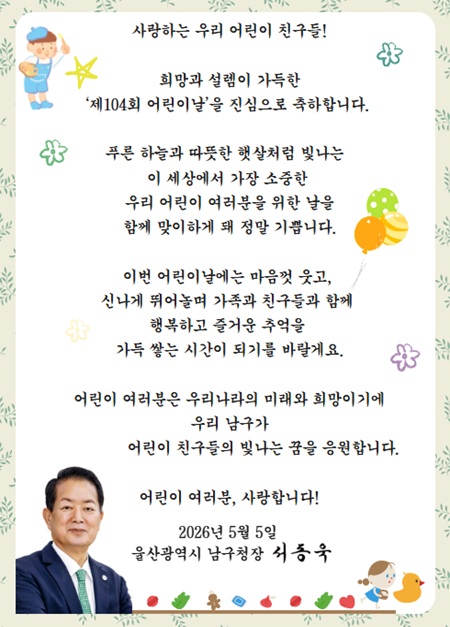 사랑하는 우리 어린이 친구들!
희망과 설렘이 가득한
‘제104회 어린이날’을 진심으로 축하합니다.
푸른 하늘과 따뜻한 햇살처럼 빛나는
이 세상에서 가장 소중한
우리 어린이 여러분을 위한 날을
함께 맞이하게 돼 정말 기쁩니다.
이번 어린이날에는 마음껏 웃고,
신나게 뛰어놀며 가족과 친구들과 함께
행복하고 즐거운 추억을
가득 쌓는 시간이 되기를 바랄게요.
어린이 여러분은 우리나라의 미래와 희망이기에
우리 남구가
어린이 친구들의 빛나는 꿈을 응원합니다.
어린이 여러분, 사랑합니다!
2026년 5월 5일
울산광역시 남구청장 서동욱